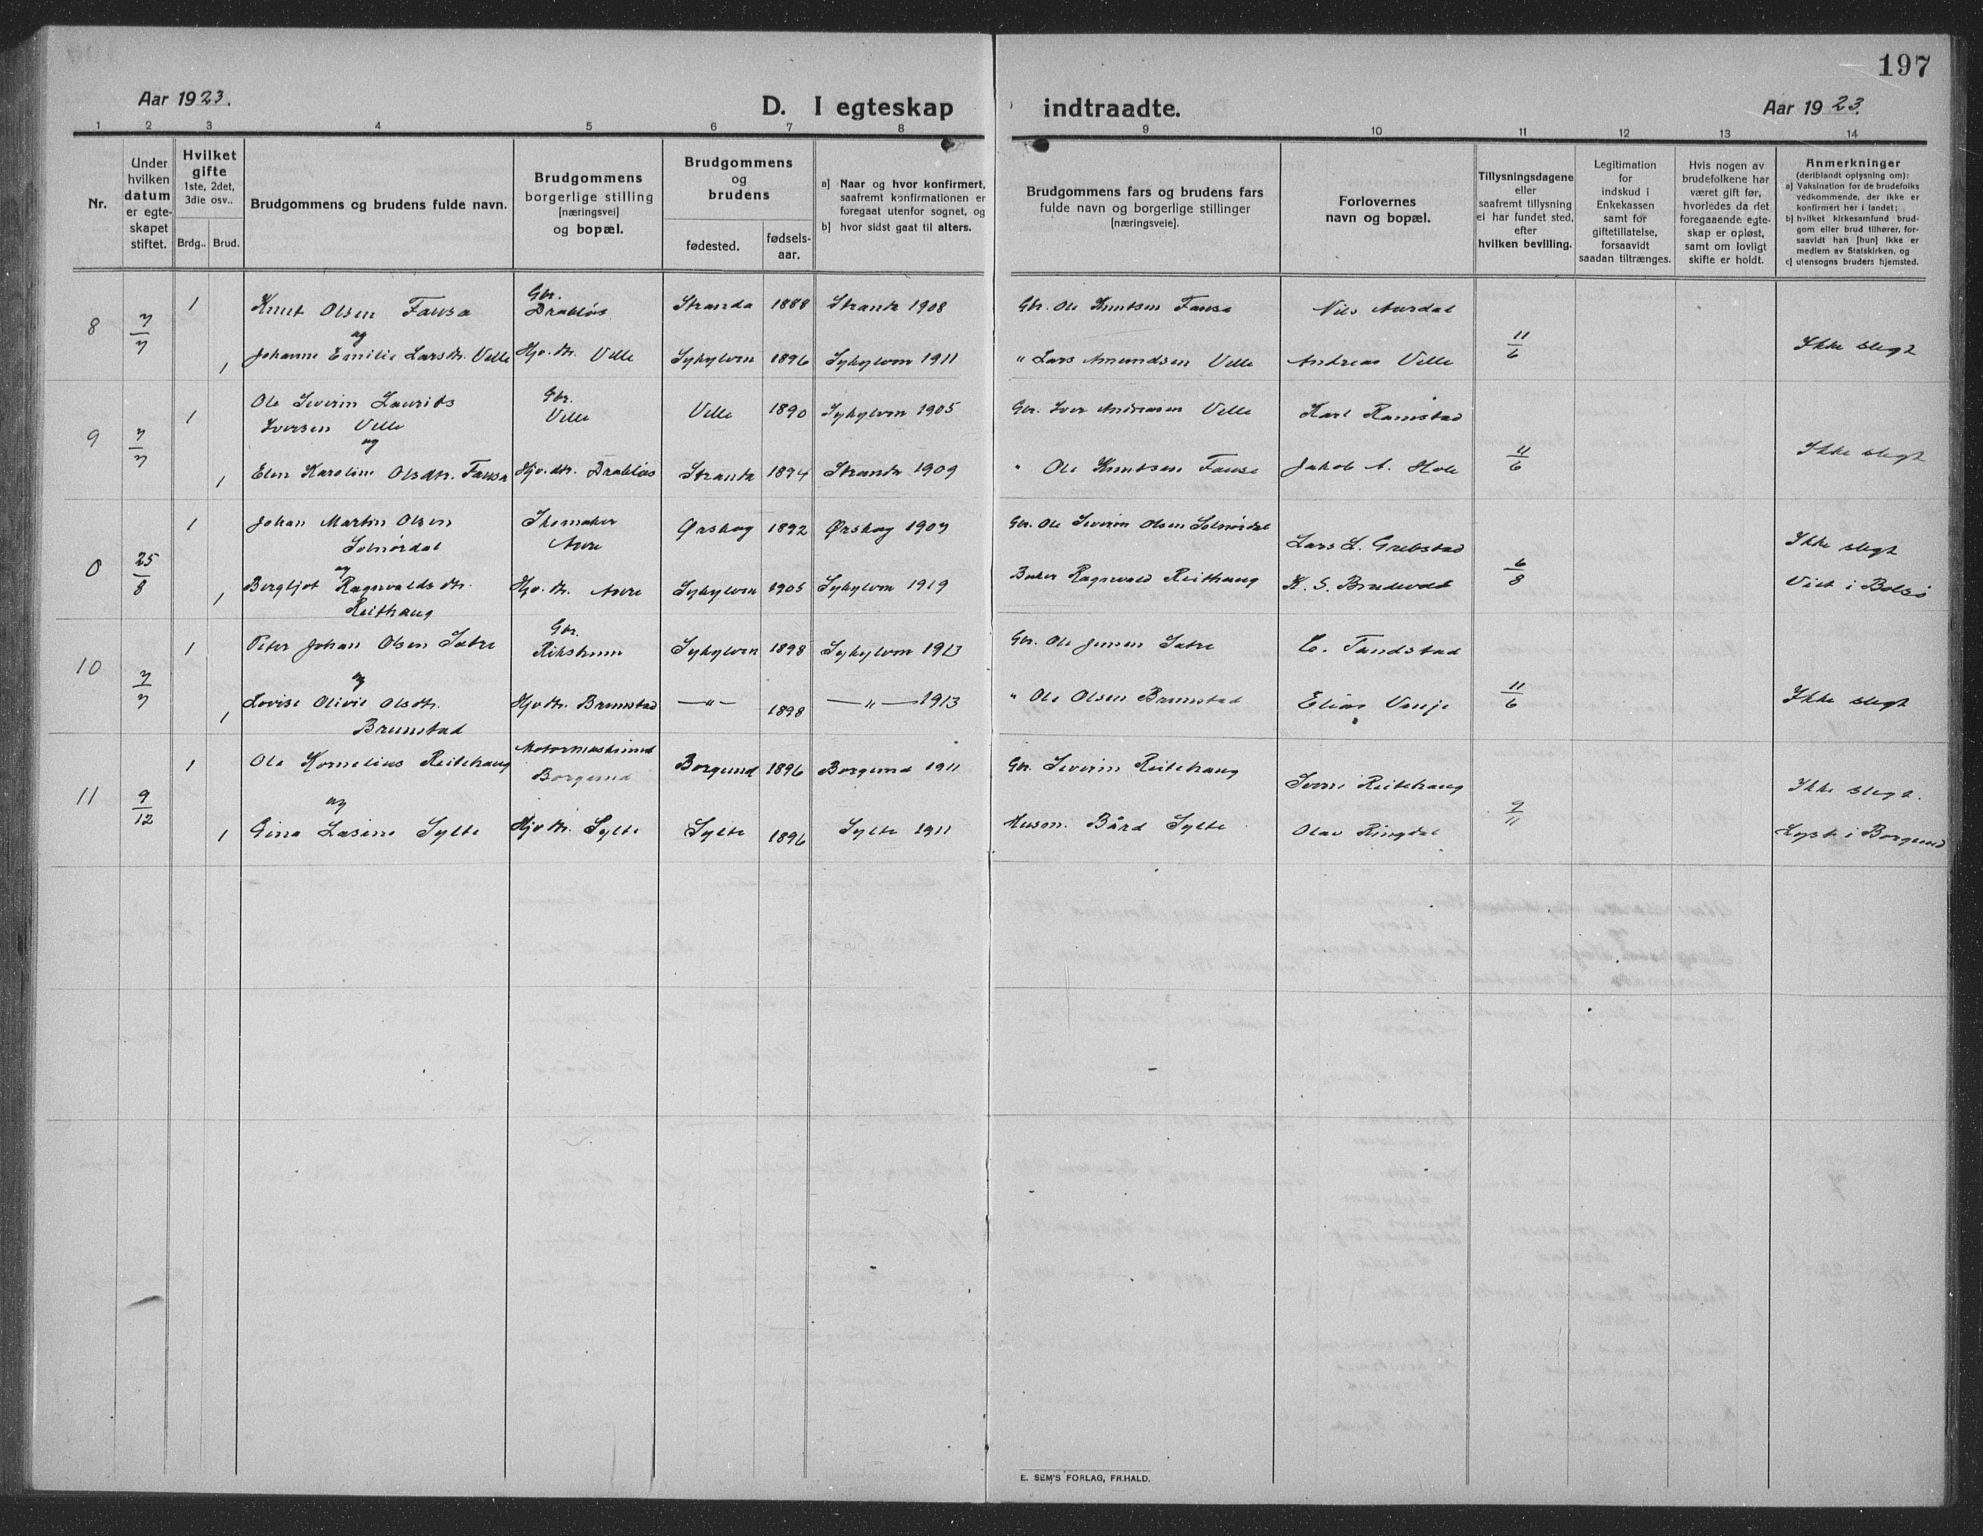 197
Aar 1923.
D. I egteskap indtraadte.
Aar 1923.
1 2 3 4 5 6 7 8 9 10 11 12 13 14
Nr.
Under hvilken datum er egte-skapet stiftet.
Hvilket gifte
1ste, 2det, 3die osv..
Brdg.. Brud.
Brudgommens og brudens fulde navn.
Brudgommens borgerlige stilling
[næringsvei]
og bopæl.
Brudgommens og brudens
fødested.
fødsels-aar.
a) Naar og hvor konfirmert, saafremt konfirmationen er foregaat utenfor sognet, og
b) hvor sidst gaat til alters.
Brudgommens fars og brudens fars
fulde navn og borgerlige stillinger
[næringsveie].
Forlovernes
navn og bopæl.
Tillysningsdagene
eller
saafremt tillysning
ei har fundet sted,
efter
hvilken bevilling.
Legitimation
for
indskud i
Enkekassen
samt for
giftetillatelse,
forsaavidt
saadan tiltrænges.
Hvis nogen av
brudefolkene har
været gift før,
hvorledes da det
foregaaende egte-
skap er opløst,
samt om lovligt
skifte er holdt.
Anmerkninger
(deriblandt oplysning om):
a) Vaksination for de brudefolks
vedkommende, der ikke er
konfirmert her i landet;
b) hvilket kirkesamfund brud-
gom eller brud tilhører, for-
saavidt han [hun] ikke er
medlem av Statskirken, og
c) utensogns bruders hjemsted.
8 7/7 1 Knut Olsen Fausa Gbr. Drabløs Stranda 1888 Stranda 1908 Gbr. Ole Knutsen Fausa Nils Aurdal 11/6 Ikke slegt
og
1 Johanne Emilie Larsdtr. Velle Hjv.dtr. Velle Sykylven 1896 Sykylven 1911 " Lars Amundsen Velle Andreas Velle
9 7/7 1 Ole Severin Laurits Gbr. Velle Velle 1890 Sykylven 1905 Gbr. Iver Andreasen Velle Karl Ramstad 11/6 Ikke slegt
Iversen Velle
og
1 Elen Karoline Olsdtr. Fausa Hjv.dtr. Drabløs Stranda 1894 Stranda 1909 " Ole Knutsen Fausa Jakob A. Hole
0 25/8 1 Johan Martin Olsen Skomaker Aure Ørskog 1892 Ørskog 1907 Gbr. Ole Severin Olsen Solnørdal Lars L. Grebstad 6/8 Ikke slegt
Solnørdal
og
1 Bergljot Ragnvaldsdtr. Hjv.dtr. Aure Sykylven 1905 Sykylven 1919 Baker Ragnvald Reithaug K. S. Brudevoll Viet i Bolsø
Reithaug
10 7/7 1 Peter Johan Olsen Sætre Gbr. Rikstrum Sykylven 1898 Sykylven 1913 Gbr. Ole Jensen Sætre C. Tandstad 11/6 Ikke slegt
og
1 Lovise Olivie Olsdtr. Hjvdtr. Brunstad —"— 1898 —"— 1913 " Ole Olsen Brunstad Elias Vinje
Brunstad
11 9/12 1 Ole Kornelius Reitehaug Motormaskinist Borgund Borgund 1896 Borgund 1911 Gbr. Severin Reitehaug Iver Reitehaug 9/11 Ikke slegt.
og
1 Gina Lasine Sylte Hjvdtr. Sylte Sylte 1896 Sylte 1911 Husm. Bård Sylte Olav Ringdal Lyst i Borgund
E. SEM'S FORLAG, FR.HALD.